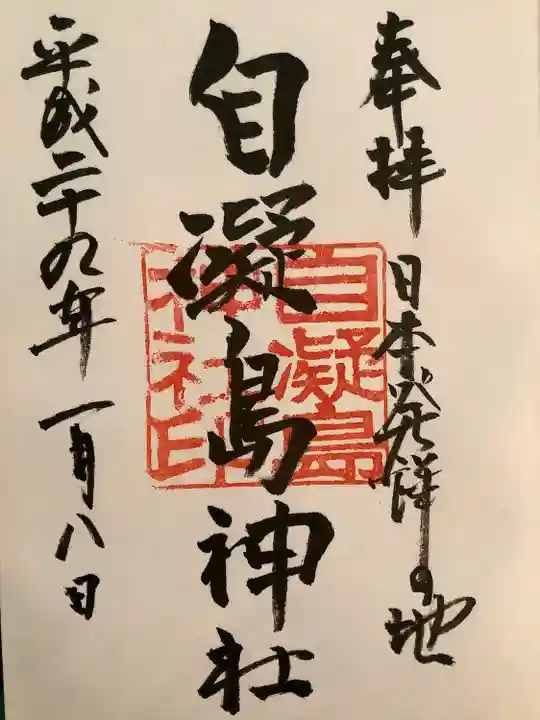 奉拝 日本発祥の地
自凝島神社
自凝島
神社印
平成二十九年一月八日